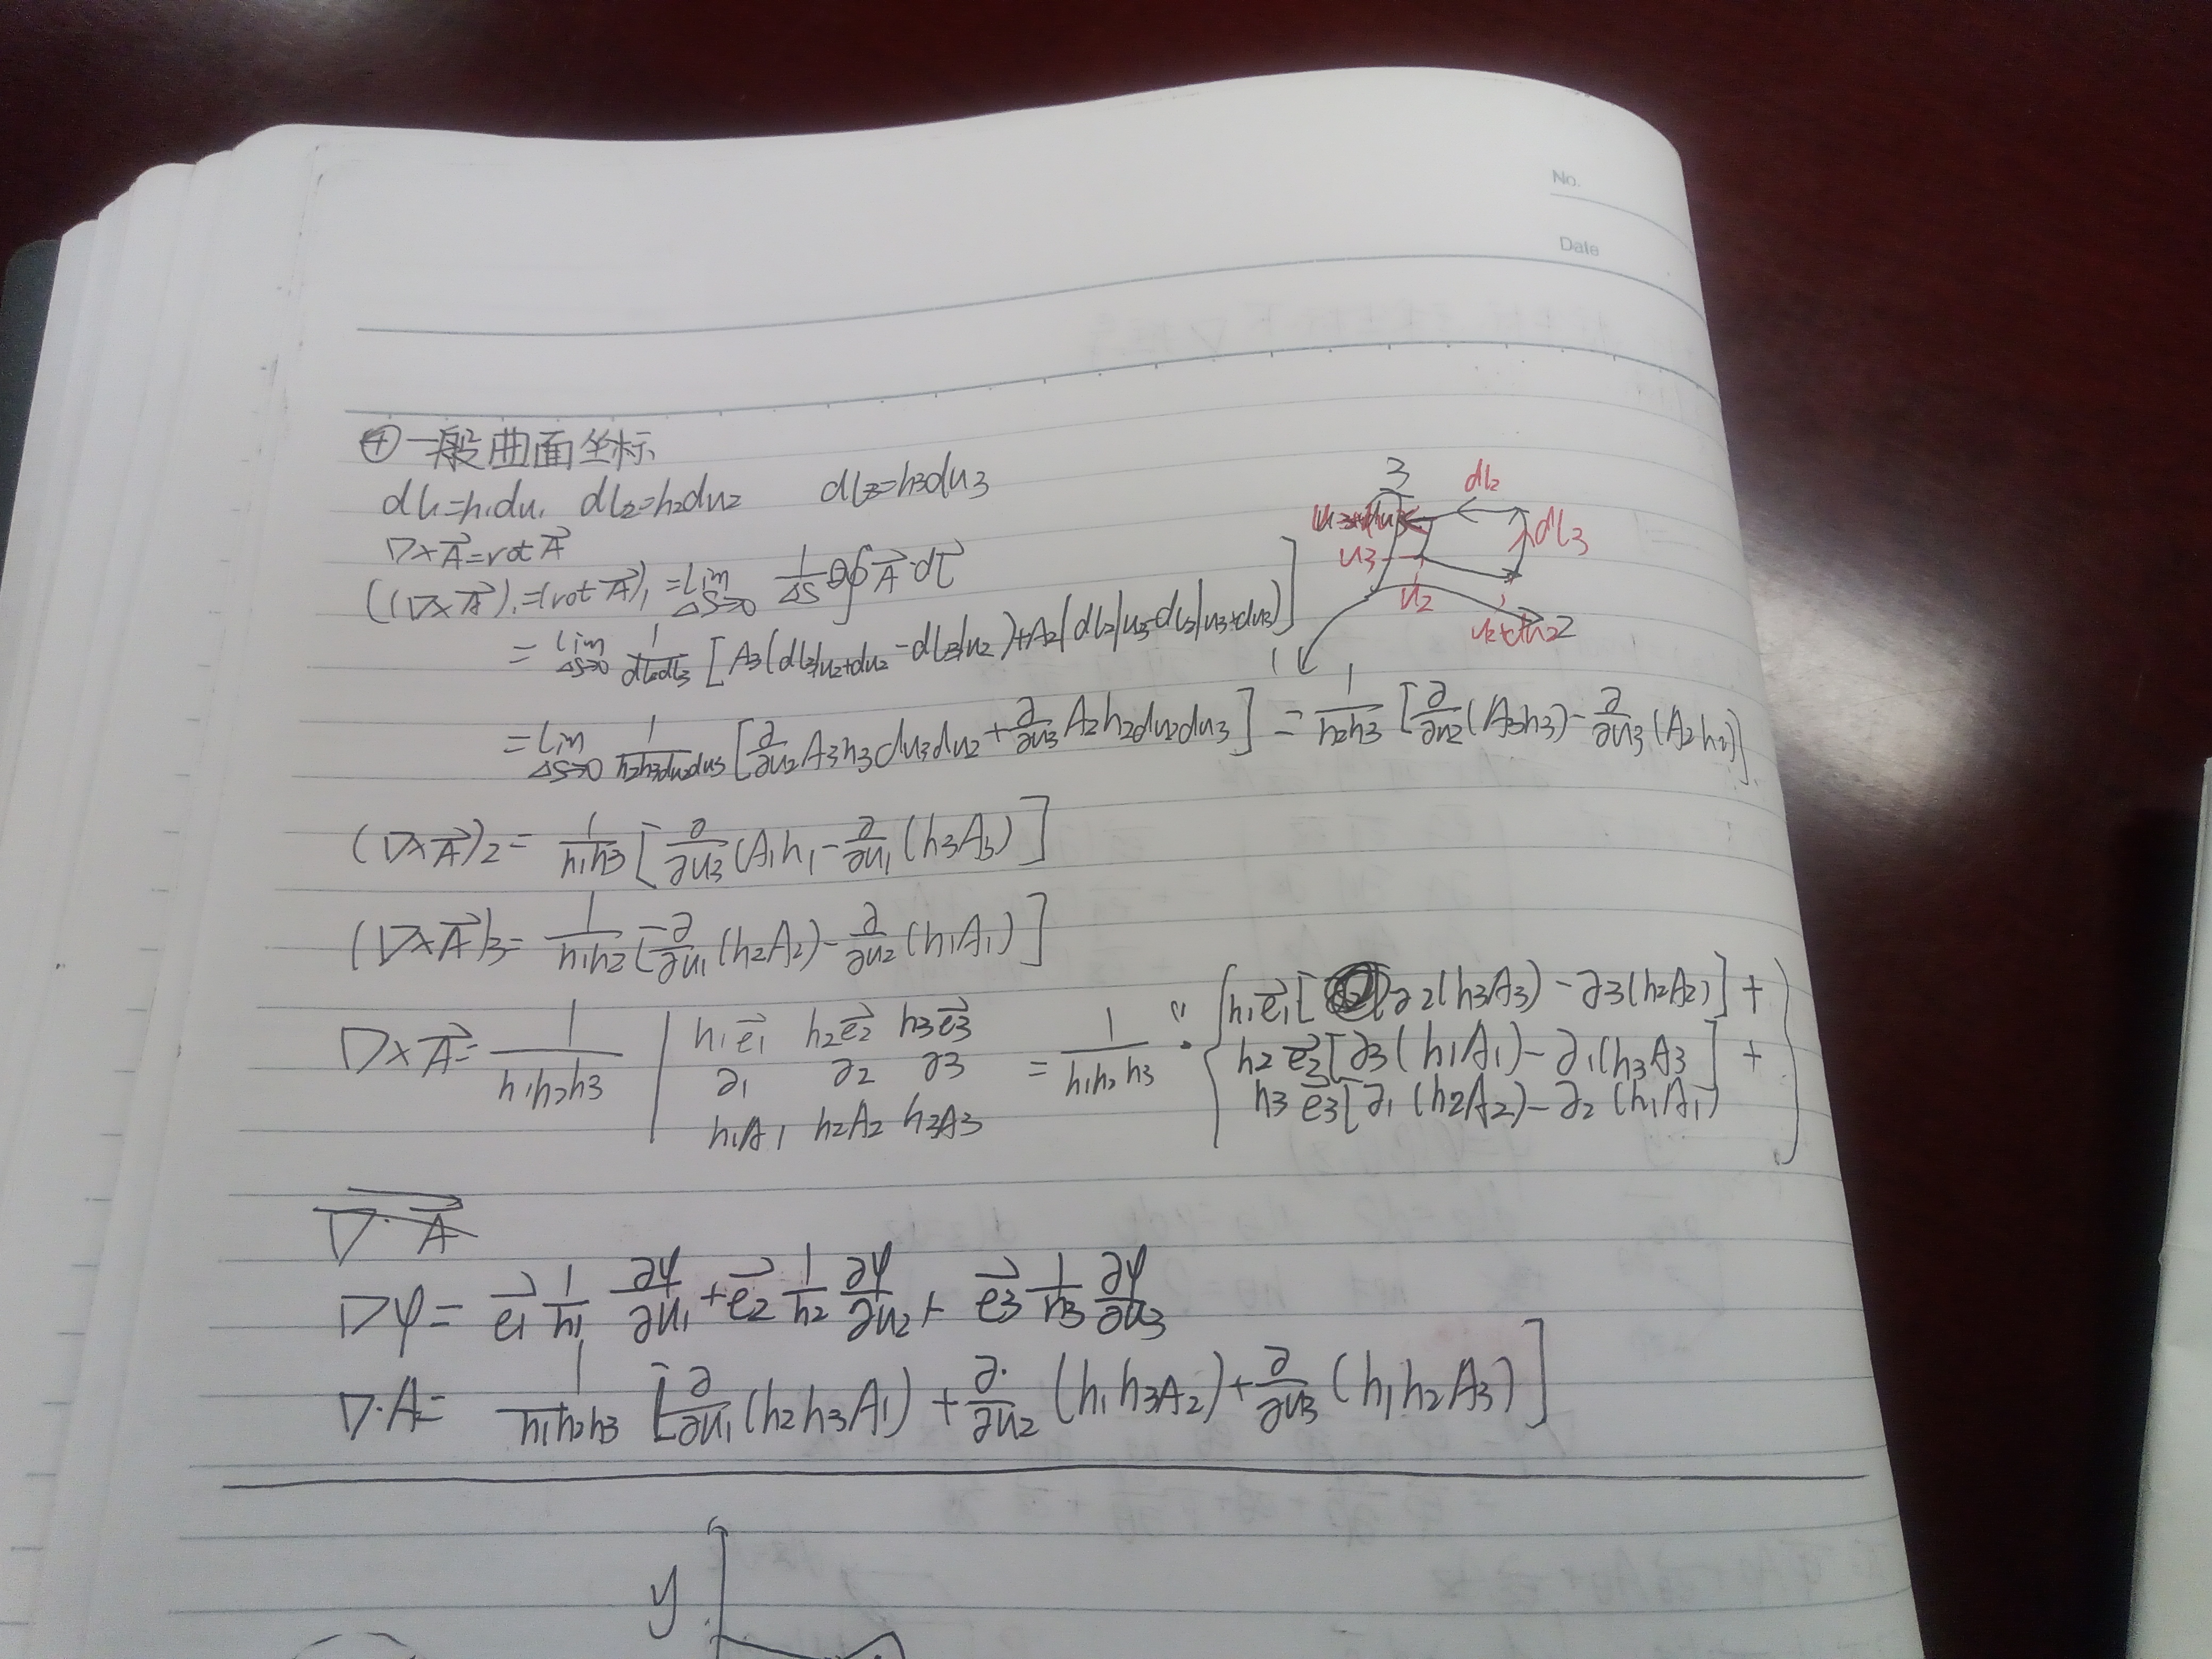 No.
Date
④一般曲面坐标
dl₁=h₁du₁ dl₂=h₂du₂ dl₃=h₃du₃
∇×A⃗=rot A⃗
(∇×A⃗)₁=(rot A⃗)₁=lim ΔS→0 1/ΔS ∮A⃗·dl⃗
= lim ΔS→0 1/dl₂dl₃ [A₃(dl₃|u₂+du₂ -dl₃|u₂)+A₂(dl₂|u₃-dl₂|u₃+du₃)]
=lim ΔS→0 1/h₂h₃du₂du₃ [∂/∂u₂ A₃h₃du₃du₂+∂/∂u₃ A₂h₂du₂du₃] = 1/h₂h₃ [∂/∂u₂(A₃h₃)-∂/∂u₃(A₂h₂)]
3
dl₂
dl₃
u₃
u₂
u₂+du₂ 2
1
(∇×A⃗)₂= 1/h₁h₃ [∂/∂u₃(A₁h₁-∂/∂u₁(h₃A₃)]
(∇×A⃗)₃= 1/h₁h₂ [∂/∂u₁(h₂A₂)-∂/∂u₂(h₁A₁)]
∇×A⃗= 1/h₁h₂h₃ | h₁e⃗₁ h₂e⃗₂ h₃e⃗₃
∂₁ ∂₂ ∂₃
h₁A₁ h₂A₂ h₃A₃
= 1/h₁h₂h₃ · { h₁e⃗₁[∂₂(h₃A₃)-∂₃(h₂A₂)] +
h₂e⃗₃[∂₃(h₁A₁)-∂₁(h₃A₃] +
h₃e⃗₃[∂₁(h₂A₂)-∂₂(h₁A₁) }
∇·A⃗
∇φ= e⃗₁ 1/h₁ ∂φ/∂u₁ +e⃗₂ 1/h₂ ∂φ/∂u₂ + e⃗₃ 1/h₃ ∂φ/∂u₃
∇·A= 1/h₁h₂h₃ [∂/∂u₁(h₂h₃A₁)+∂/∂u₂(h₁h₃A₂)+∂/∂u₃(h₁h₂A₃)]
y